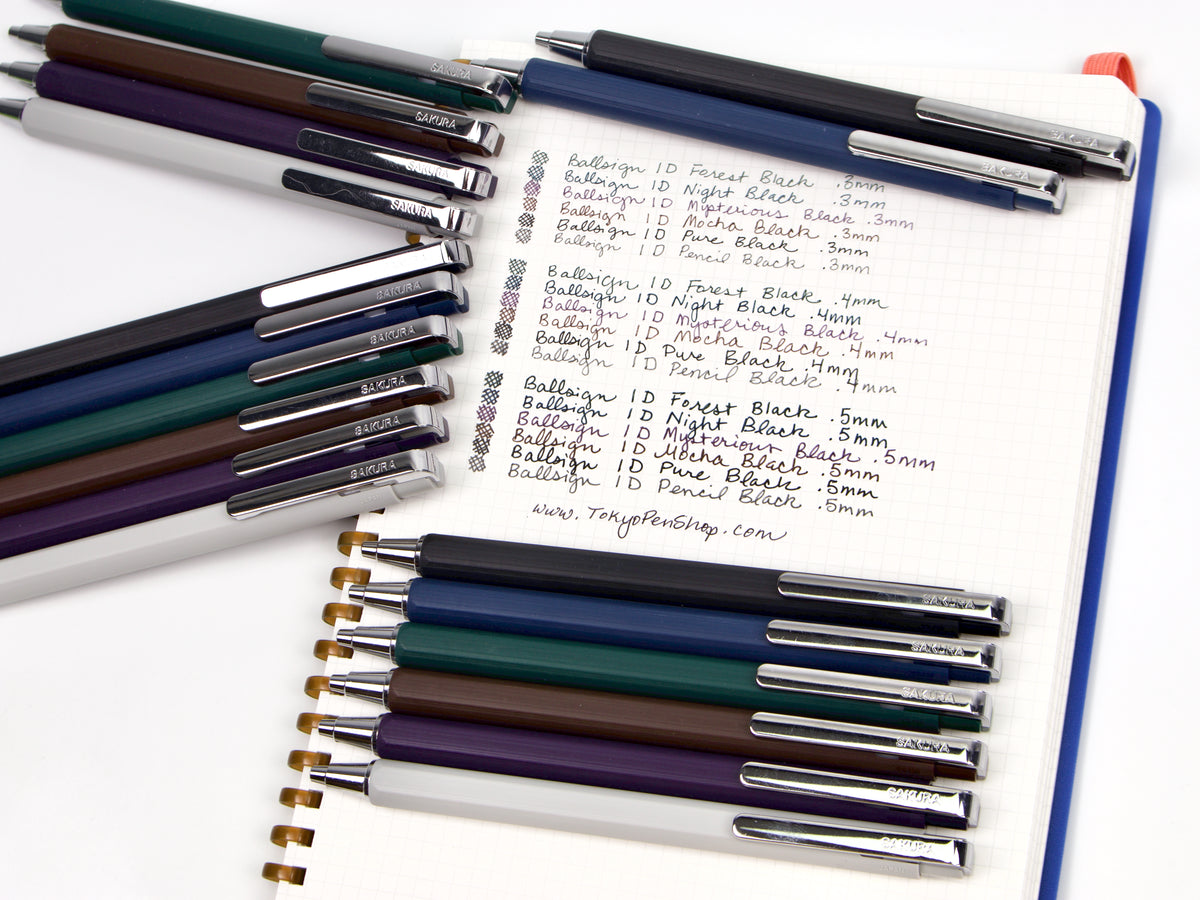 SAKURA
SAKURA
SAKURA
SAKURA
SAKURA
SAKURA
Ballsign 1D Forest Black .3mm
Ballsign 1D Night Black .3mm
Ballsign 1D Mysterious Black .3mm
Ballsign 1D Mocha Black .3mm
Ballsign 1D Pure Black .3mm
Ballsign 1D Pencil Black .3mm
Ballsign 1D Forest Black .4mm
Ballsign 1D Night Black .4mm
Ballsign 1D Mysterious Black .4mm
Ballsign 1D Mocha Black .4mm
Ballsign 1D Pure Black .4mm
Ballsign 1D Pencil Black .4mm
Ballsign 1D Forest Black .5mm
Ballsign 1D Night Black .5mm
Ballsign 1D Mysterious Black .5mm
Ballsign 1D Mocha Black .5mm
Ballsign 1D Pure Black .5mm
Ballsign 1D Pencil Black .5mm
www.TokyoPenShop.com
SAKURA
SAKURA
SAKURA
SAKURA
SAKURA
SAKURA
SAKURA
SAKURA
SAKURA
SAKURA
SAKURA